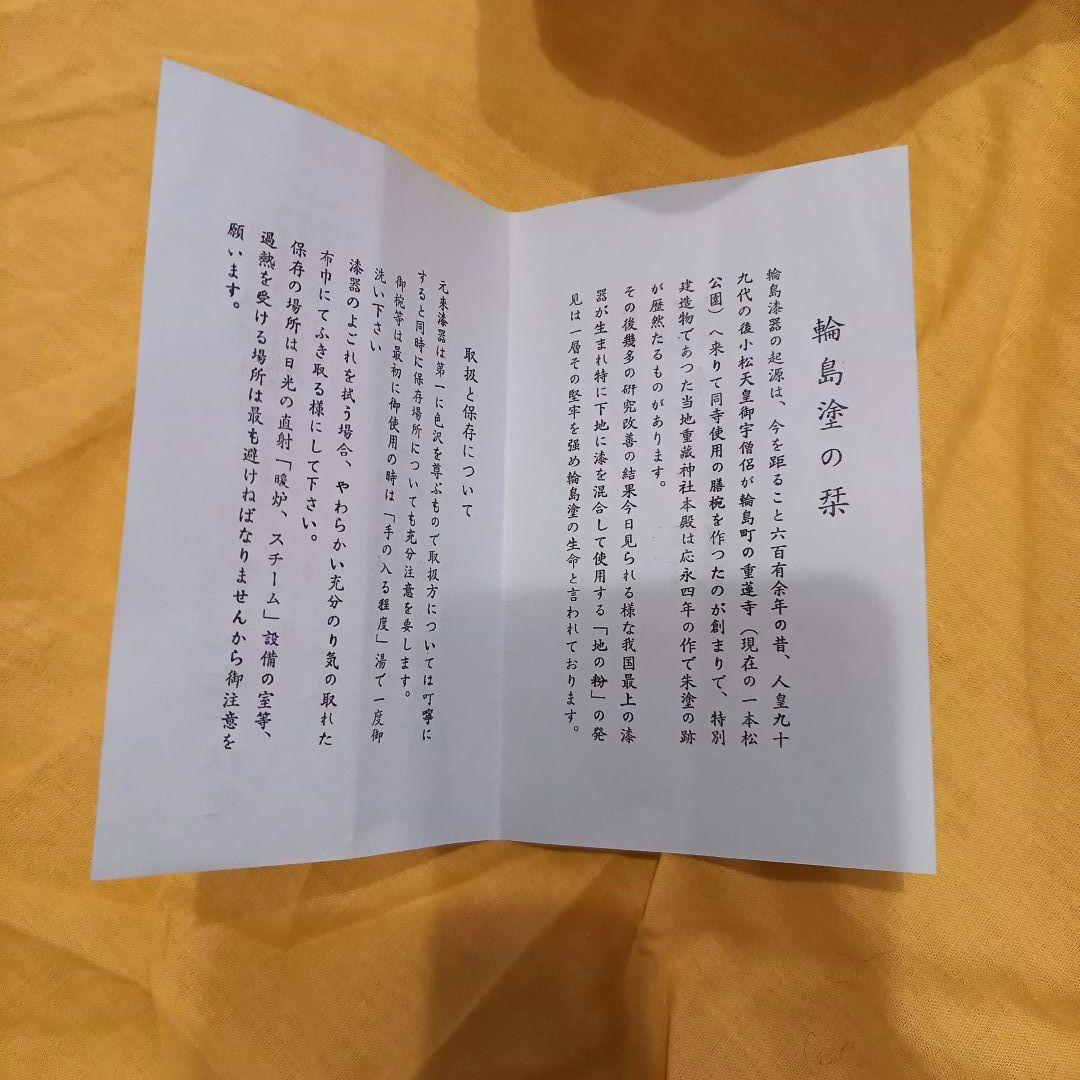 輪島塗の栞
輪島漆器の起源は、今を距ること六百有余年の昔、人皇九十
九代の後小松天皇御宇僧侶が輪島町の重蓮寺（現在の一本松
公園）へ来りて同寺使用の膳椀を作つたのが創まりで、特別
建造物であつた当地重蔵神社本殿は応永四年の作で朱塗の跡
が歴然たるものがあります。
その後幾多の研究改善の結果今日見られる様な我国最上の漆
器が生まれ特に下地に漆を混合して使用する「地の粉」の発
見は一層その堅牢を強め輪島塗の生命と言われております。
取扱と保存について
元来漆器は第一に色沢を尊ぶもので取扱方については叮嚀に
すると同時に保存場所についても充分注意を要します。
御椀等は最初に御使用の時は「手の入る程度」湯で一度御
洗い下さい
漆器のよごれを拭う場合、やわらかい充分のり気の取れた
布巾にてふき取る様にして下さい。
保存の場所は日光の直射「暖炉、スチーム」設備の室等、
過熱を受ける場所は最も避けねばなりませんから御注意を
願います。